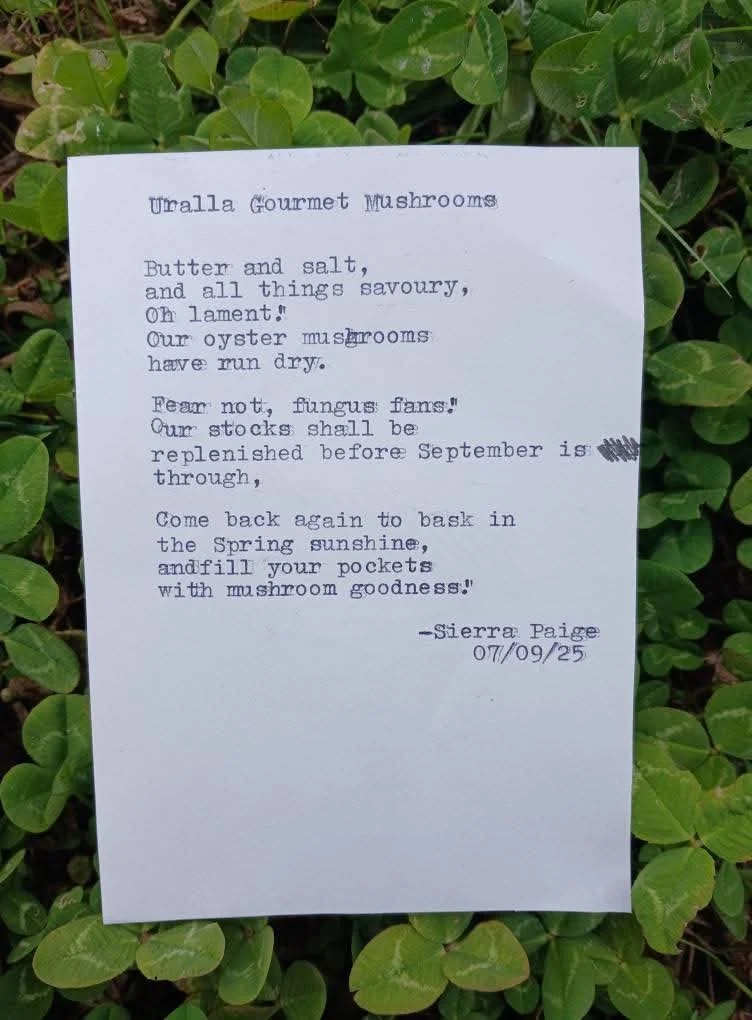 Uralla Gourmet Mushrooms
Butter and salt,
and all things savoury,
Oh lament!
Our oyster mushrooms
have run dry.
Fear not, fungus fans!
Our stocks shall be
replenished before September is
through,
Come back again to bask in
the Spring sunshine,
andfill your pockets
with mushroom goodness!
-Sierra Paige
07/09/25